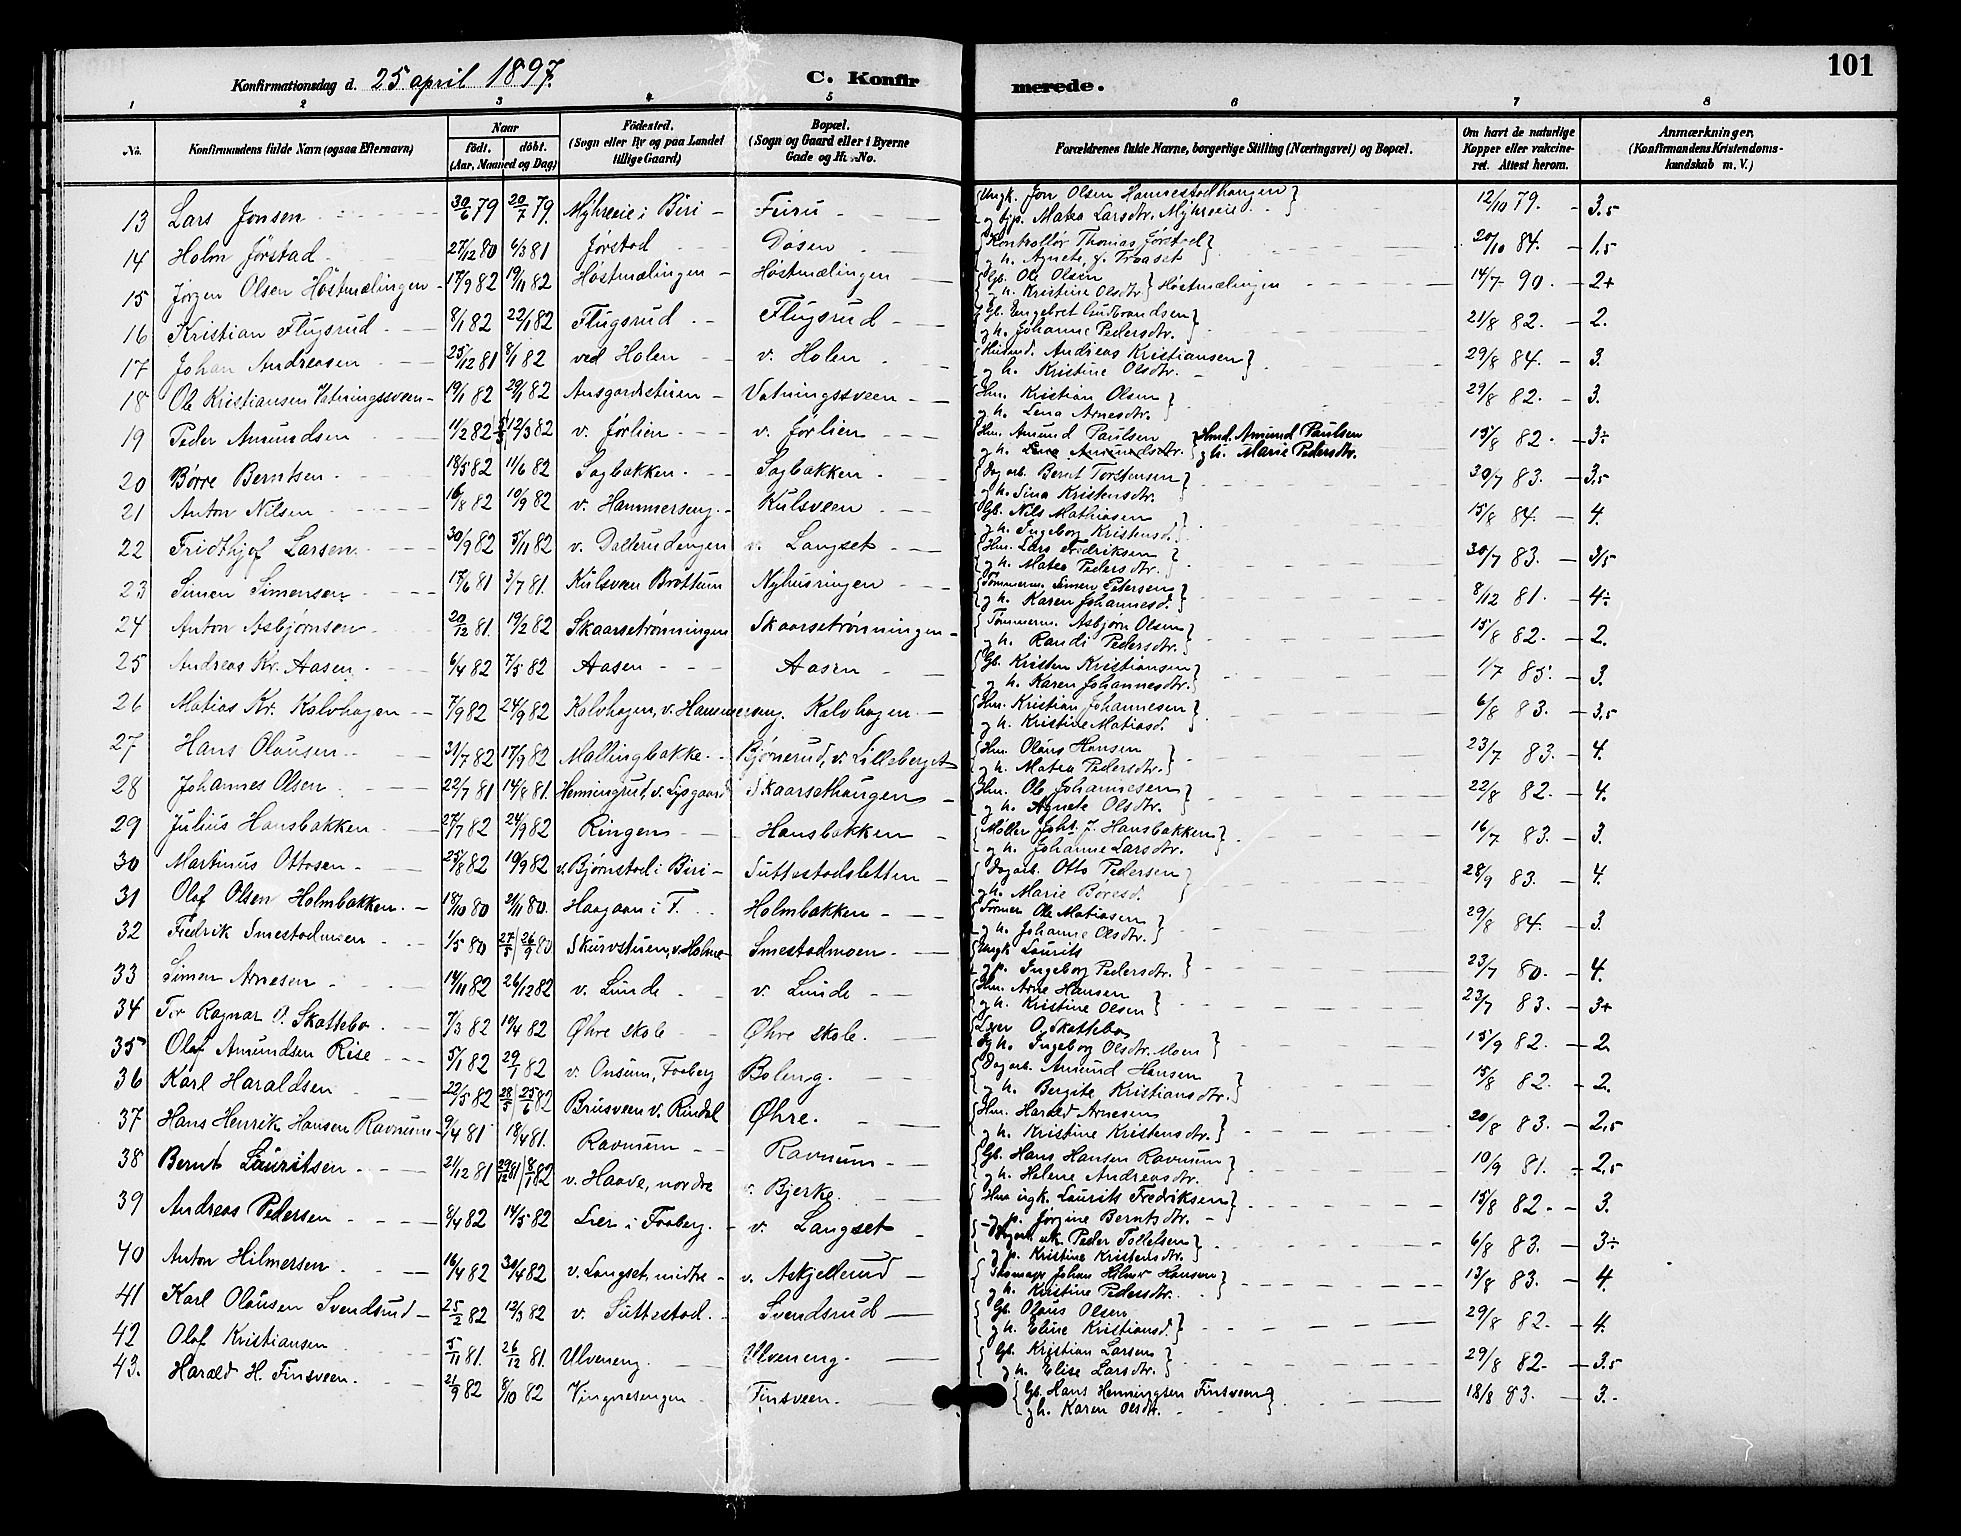 101
Konfirmationsdag d. 25 april 1897.
C. Konfirmerede.
1 2 3 4 5 6 7 8
No. Konfirmandens fulde Navn (ogsaa Efternavn) Naar födt. döbt. (Aar, Maaned og Dag) Födested. (Sogn eller By og paa Landet tillige Gaard) Bopæl. (Sogn og Gaard eller i Byerne Gade og H.-No. Forældrenes fulde Navne, borgerlige Stilling (Næringsvei) og Bopæl. Om havt de naturlige Kopper eller vaccineret. Attest herom. Anmærkninger. (Konfirmandens Kristendomskundskab m. V.)
13 Lars Jonsen 30/6 79 20/7 79. Myhreeie i Biri Furu {Ungk. Jon Olsen og pp. Matea Larsdtr. Myhreeie} 12/10 79. 3.5
14 Holm Jörstad 27/12 80 6/3 81 Jørstad Døsen {Kontrollør Thomas Jørstad og h. Agnete, f. Traaset} 20/10 84. 1.5
15 Jørgen Olsen Höstmælingen 17/9 82 19/11 82 Höstmælingen Höstmælingen {Gb. Ole Olsen og h. Kristine Olsdtr.} Höstmælingen 14/7 90. 2+
16 Kristian Flugsrud 8/1 82 22/1 82 Flugsrud Flugsrud {Gb. Engebret Gudbrandsen og h. Johanne Pedersdtr.} 21/8 82. 2.
17 Johan Andreasen 25/12 81 8/1 82 ved Holen v. Holen {Husmd. Andreas Kristiansen og h. Kristine Olsdtr.} 29/8 84. 3.
18 Ole Kristiansen Vatningssveen 19/1 82 29/1 82 Vatningssveen {Hm. Kristian Olsen og h. Lena Arnesdtr.} 29/8 82. 3.
19 Peder Amundsen 11/2 82 12/3 82 v. Jørlien v. Jørlien {Hm. Amund Paulsen og h. Lena Amundsdtr. {Hmd. Amund Paulsen og h. Marie Pedersdtr. 15/8 82. 3÷
20 Börre Berntsen 18/5 82 11/6 82 Sagbakken. Sagbakken. {Dagarb. Bernt Torstensen og h. Sina Kristensdtr. 30/7 83. 3.5
21 Anton Nilsen 16/8 82 10/9 82 v. Hammerseng. Kulsveen {Gb. Nils Mathiasen og h. Ingeborg Kristensd.} 15/8 84. 4.
22 Fridthjof Larsen 30/9 82 5/11 82 v. Dallerudengen v. Langset {Hm. Lars Fredriksen og h. Matea Pedersdtr.} 30/7 83. 3/5
23 Simen Simensen 17/6 81 3/7 81. Kulsveen Brøttum Nyhusringen {Tømmerm. Simen Pedersen og h. Karen Johannesd.} 8/12 81. 4÷
24 Anton Asbjørnsen 20/12 81. 19/2 82 Skaarsetrønningen Skaarsetrønningen {Tømmerm. Asbjørn Olsen og h. Randi Pedersdtr.} 15/8 82. 2.
25 Andreas Kr. Aasen 6/4 82 7/5 82 Aasen Aasen {Gb. Kristen Kristiansen og h. Karen Johannesdtr.} 1/7 85. 3.
26 Matias Kr. Kalvhagen 7/9 82 24/9 82 Kalvhagen, v. Hammerseng. Kalvhagen {Hm. Kristian Johannesen og h. Kristine Matiasd. 6/8 83. 3.5
27 Hans Olausen 31/7 82 17/9 82 Mallingbakke Bjørnerud, v. Lilleberget {Hm. Olaus Hansen og h. Matea Pedersdtr.} 23/7 83. 4.
28 Johannes Olsen 22/7 81 14/8 81. Henningrud, v. Lysgaard Skaarsethaugen {Hm. Ole Johannesen og h. Agnete Olsdtr. 22/8 82. 4.
29 Julius Hansbakken 27/7 82 24/9 82 Ringen Hansbakken {Møller Joh. J. Hansbakken og h. Johanne Larsdtr.} 16/7 83. 3.
30 Martinus Ottosen 25/8 82 10/9 82 v. Bjørnstad i Biri Suttestadsletten {Dagarb. Otto Pedersen og h. Marie Böresd. 28/9 83. 4.
31 Olaf Olsen Holmbakken 18/10 80 21/11 80. Haagaar i F. Holmbakken {Tömmer Ole Matiasen og h. Johanne Olsdtr.} 29/8 84. 3.
32 Fredrik Smestadmoen 1/5 80 27/5 | 26/9 80 Skurvstuen, v. Holme Smestadmoen {Ungk. Laurits og p. Ingeborg Pedersdtr.} 23/7 80. 4.
33 Simen Arnesen 14/11 82 26/12 82 v. Lunde v. Lunde {Hm. Arne Hansen og h. Kristine Olsen} 23/7 83. 3+
34 Tor Ragnar O. Skattebo 7/3 82 10/4 82 Øhre skole Øhre skole. {Lærer O. Skattebo og h. Ingeborg Olsdtr. Moen} 15/9 82. 2
35 Olaf Amundsen Rise 5/1 82 29/1 82 v. Onsum, Faaberg Boleng. {Dagarb. Amund Hansen og h. Bergite Kristiansdtr.} 15/8 82. 2.
36 Karl Haraldsen 22/5 82 28/5 | 25/6 82 Brusveen v. Rindal Øhre. {Hm. Harald Arnesen og h. Kristine Kristensdtr.} 20/8 83. 2.5
37 Hans Henrik Hansen Ravnum 9/4 81 18/4 81. Ravnum Ravnum {Gb. Hans Hansen Ravnum og h. Helene Andreasdtr.} 10/9 81. 2.5
38 Bernt Lauritsen 21/12 81 29/12 81 | 8/1 82 v. Haave, nordre v. Bjerke {Hm ugk. Laurits Fredriksen og p. Jørgine Berntsdtr.} 15/8 82 3.
39 Andreas Pedersen 8/4 82 14/5 82 Lier i Faaberg. v. Langset {Peder Tollefsen og p. Kristine Kristensdtr.} 6/8 83. 3÷
40 Anton Hilmersen 16/4 82 30/4 82 v. Langset, midtre v. Askjellrud {Skomagr Johan Hilmer Hansen og h. Kristine Pedersdtr.} 13/8 83. 4.
41 Karl Olausen Svendsrud 25/2 82 12/3 82 v. Suttestad. Svendsrud {Gb. Olaus Olsen og h. Eline Kristiansd.} 29/8 82. 4.
42 Olaf Kristiansen 5/11 81. 26/12 81. Ulveneng. Ulveneng. {Gb. Kristian Larsen og h. Elise Larsdtr.} 29/8 82. 3.5
43. Harald H. Finsveen. 21/9 82 8/10 82 Vingnesengen Finsveen. {Gb. Hans Henningsen Finsveen og h. Karen Olsdtr.} 18/8 83. 3.